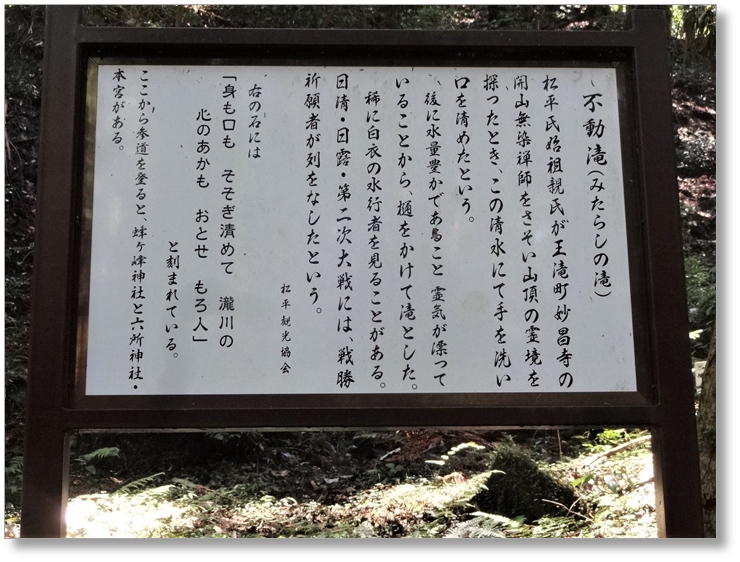 不動滝(みたらしの滝)
松平氏始祖親氏が王滝町妙昌寺の
開山無染禅師をさそい山頂の霊境を
探ったとき、この清水にて手を洗い
口を清めたという。
後に水量豊かであること 霊気が漂って
いることから、樋をかけて滝とした。
稀に白衣の水行者を見ることがある。
日清・日露・第二次大戦には、戦勝
祈願者が列をなしたという。
松平観光協会
右の石には
「身も口も そそぎ清めて 瀧川の
心のあかも おとせ もろ人」
と刻まれている。
ここから参道を登ると、蜂ヶ峰神社と六所神社・
本宮がある。